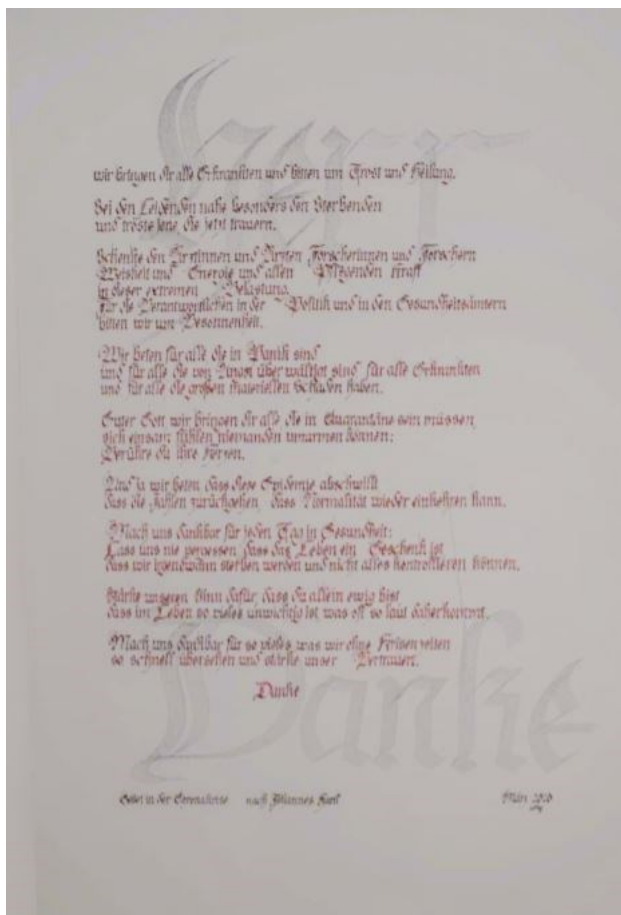 Herr
wir bringen dir alle Erkrankten und bitten um Trost und Heilung.
Sei den Leidenden nahe besonders den Sterbenden
und tröste jene, die jetzt trauern.
Schenke den Ärztinnen und Ärzten Forscherinnen und Forschern
Weisheit und Energie und allen Pflegenden Kraft
in dieser extremen Belastung.
für die Verantwortlichen in der Politik und in den Gesundheitsämtern
bitten wir um Besonnenheit.
Wir beten für alle die in Panik sind
und für alle die von Angst überwältigt sind für alle Erkrankten
und für alle die großen materiellen Schaden haben.
Guter Gott wir bringen dir alle die in Quarantäne sein müssen,
sich einsam fühlen niemanden umarmen können:
Berühre du ihre Herzen.
Und ja wir beten dass diese Epidemie abschwillt
dass die Zahlen zurückgehen, dass Normalität wieder einkehren kann.
Mach uns dankbar für jeden Tag in Gesundheit:
Lass uns nie vergessen dass das Leben ein Geschenk ist
dass wir irgendwann sterben werden und nicht alles kontrollieren können.
Stärke unseren Sinn dafür, dass du allein ewig bist
dass im Leben so vieles unwichtig ist was oft so laut daherkommt.
Mach uns dankbar für so vieles was wir ohne Krisenzeiten
so schnell übersehen und stärke unser Vertrauen.
Danke
Danke
Gebet in der Coronakrise nach Johannes
März 2020